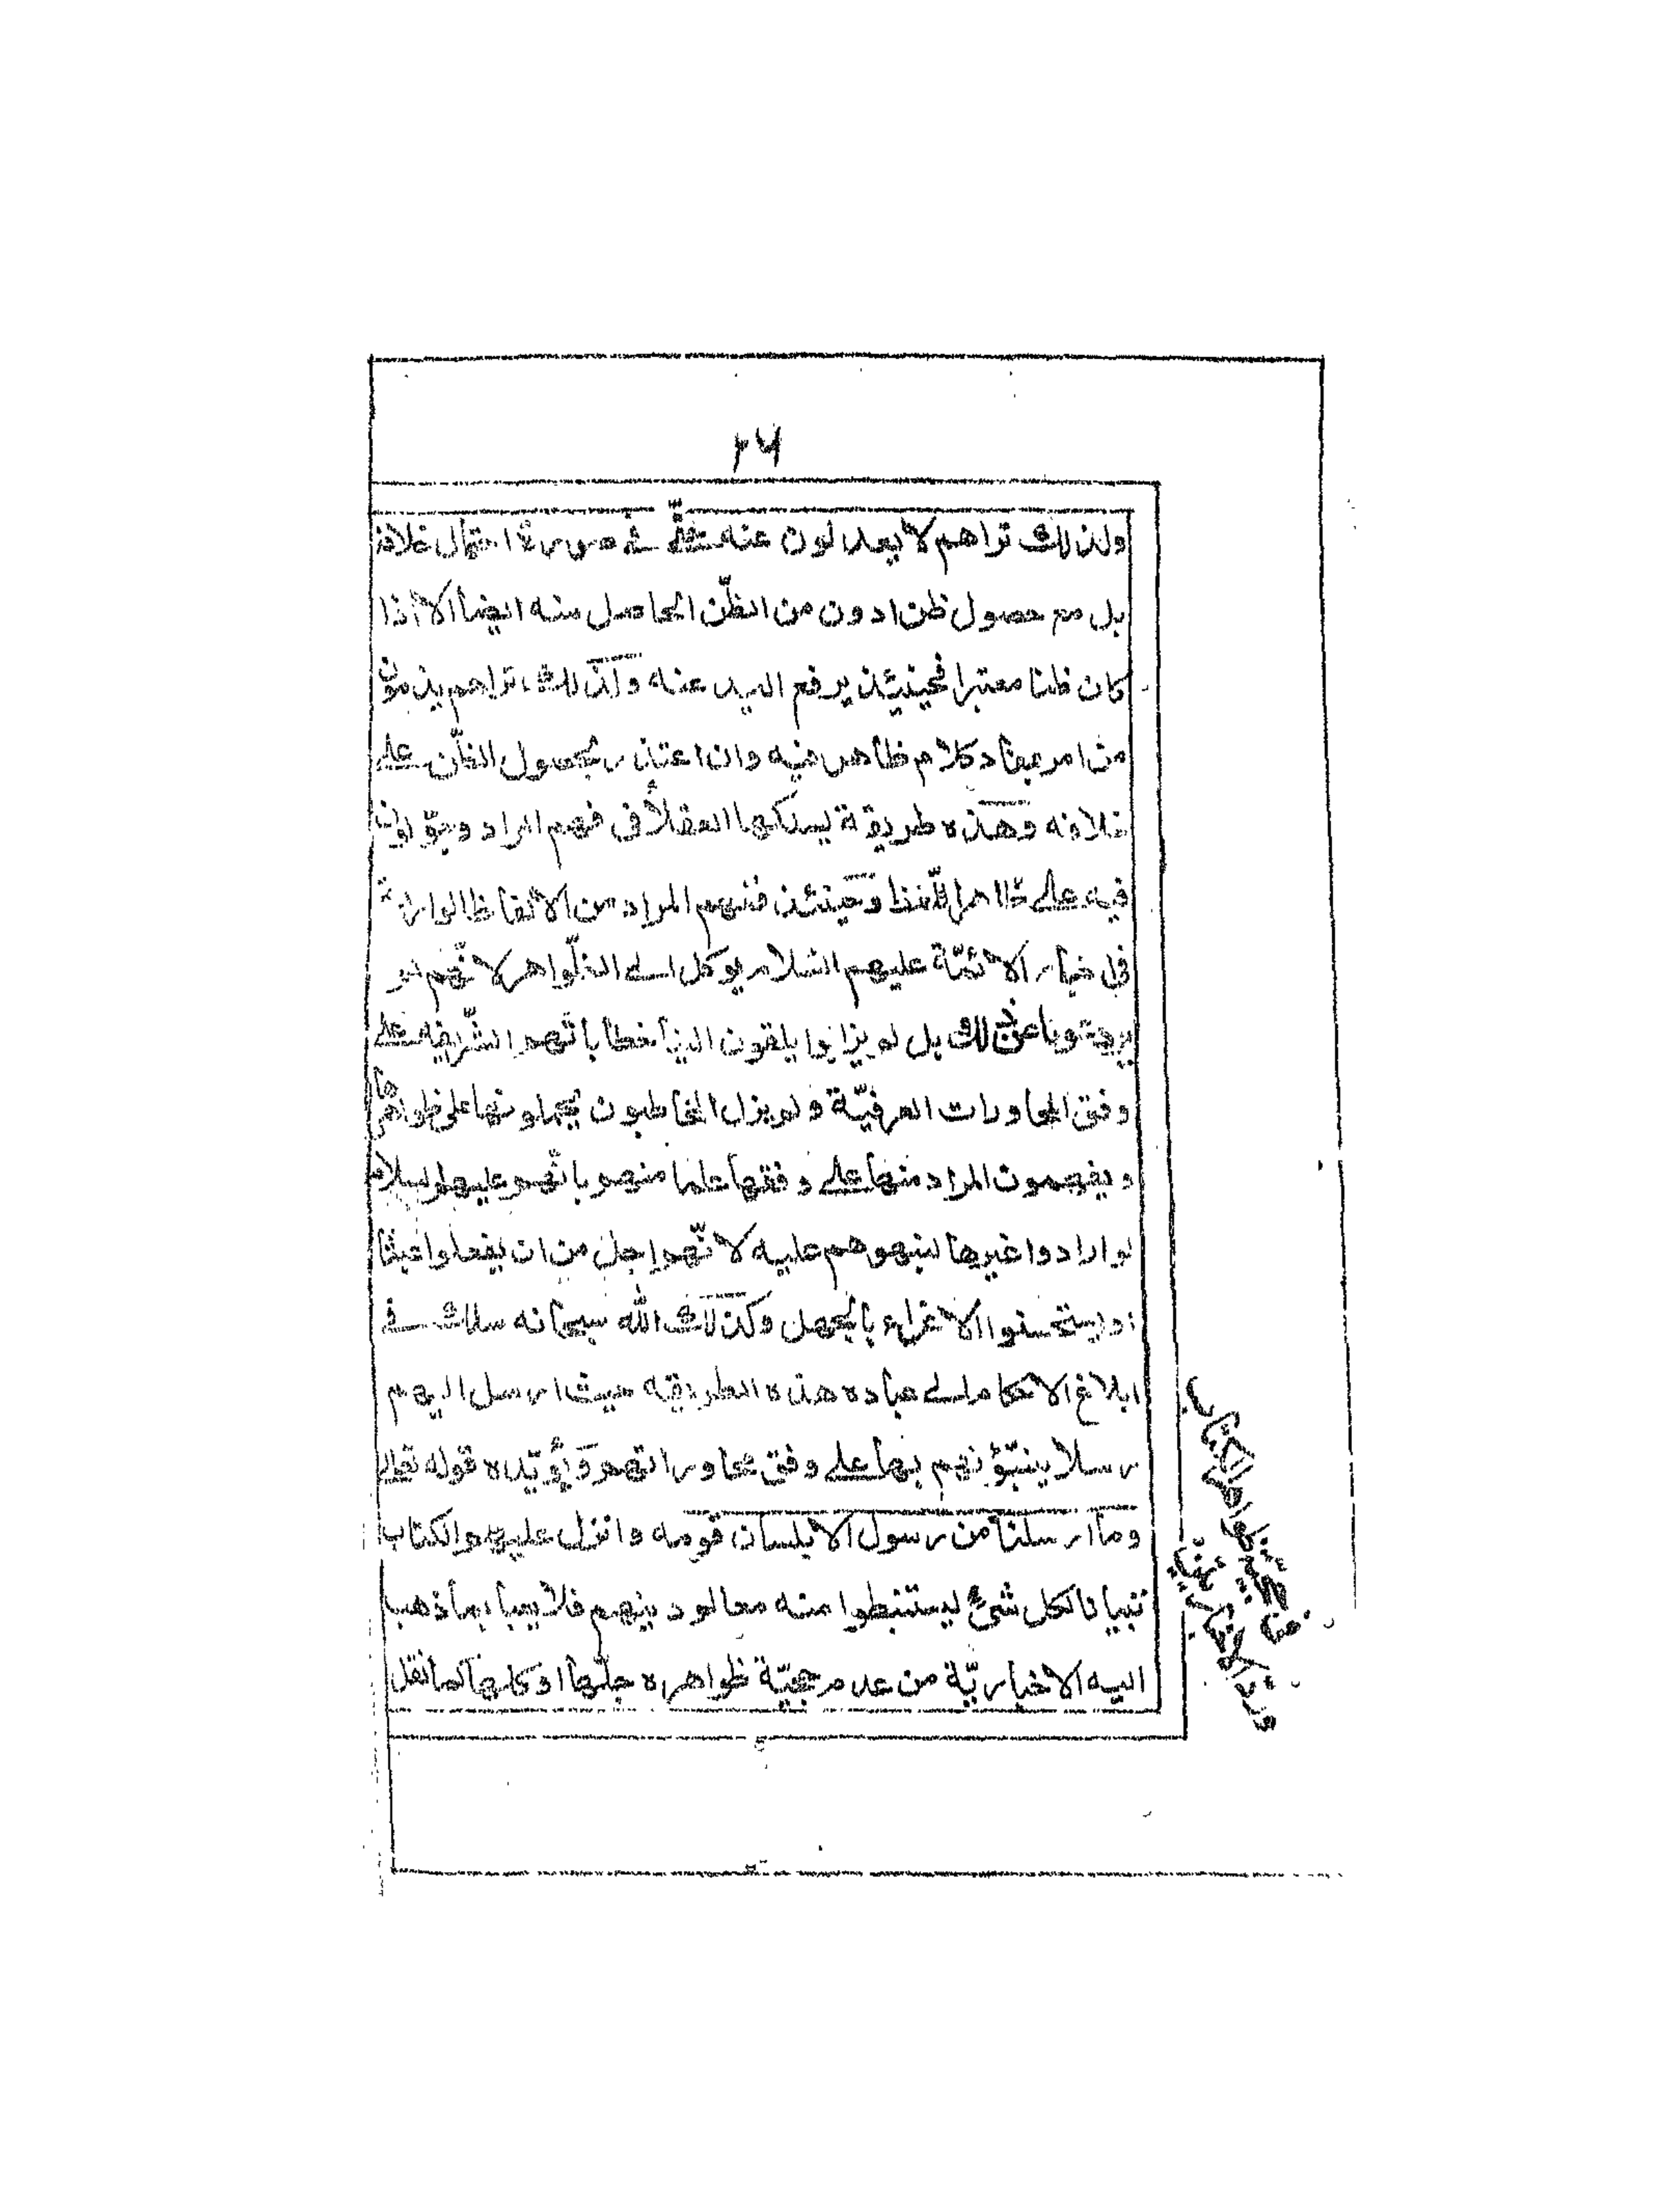 ٢٦
ولذلك تراهم لا يعدلون عنه حتّى فے صورة احتمال خلافه
بل مع حصول ظن ادون من الظّن الحاصل منه ايضا الا اذا
كان ظنا معتبرا فحينئذ يرفع اليد عنه ولذلك تراهم يذمون
من امر بمفاد كلام ظاهر فيه وان اعتذر بحصول الظّن علے
خلافه وهذه طريقة يسلكها العقلاء فى فهم المراد
فيه علے ظاهر اللّفظ وحينئذ ففهم المراد من الالفاظ الواردة
فى اخبار الائمّة عليهم السّلام يوكل الے الظّواهر لانّهم لم
عن ذلك بل لم يزالوا يلقون الينا خطاباتهم الشّريفه علے
وفق المحاورات العرفيّة ولم يزل المخاطبون يحملونها على ظواهرها
ويفهمون المراد منها علے وفقها علما منهم بانّهم عليهم السلام
لو ارادوا غيرها لنبهوهم عليه لانّهم اجلّ من ان يفعلوا عبثا
او يستحسنوا الاغراء بالجهل وكذلك الله سبحانه سلك فے
ابلاغ الاحكام الے عباده هذه الطريقه حيث ارسل اليهم
رسلا ينبّؤنهم بها علے وفق محاوراتهم ويؤيّده قوله تعالے
وما ارسلنا من رسول الا بلسان قومه وانزل عليهم الكتاب
تبيانا لكل شئ ليستنبطوا منه معالم دينهم فلا يعبأ بما ذهب
اليه الاخباريّة من عدم حجيّة ظواهره جلّها او كلها لما نقل